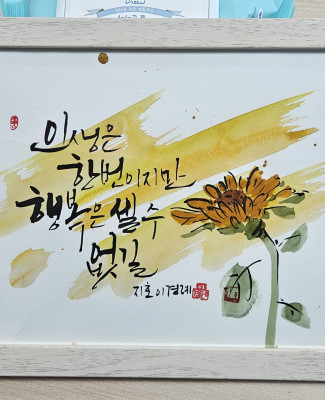 인생은
한번이지만
행복은 셀 수
없길
지호 이경례